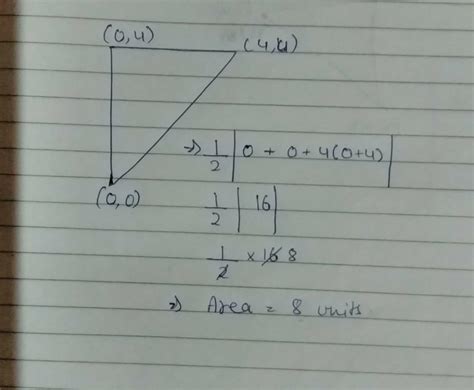 (0,4) (4,4)
=> 1/2 | 0 + 0 + 4(0+4) |
(0,0)
1/2 | 16 |
1/2 × 16 8
=> Area = 8 units